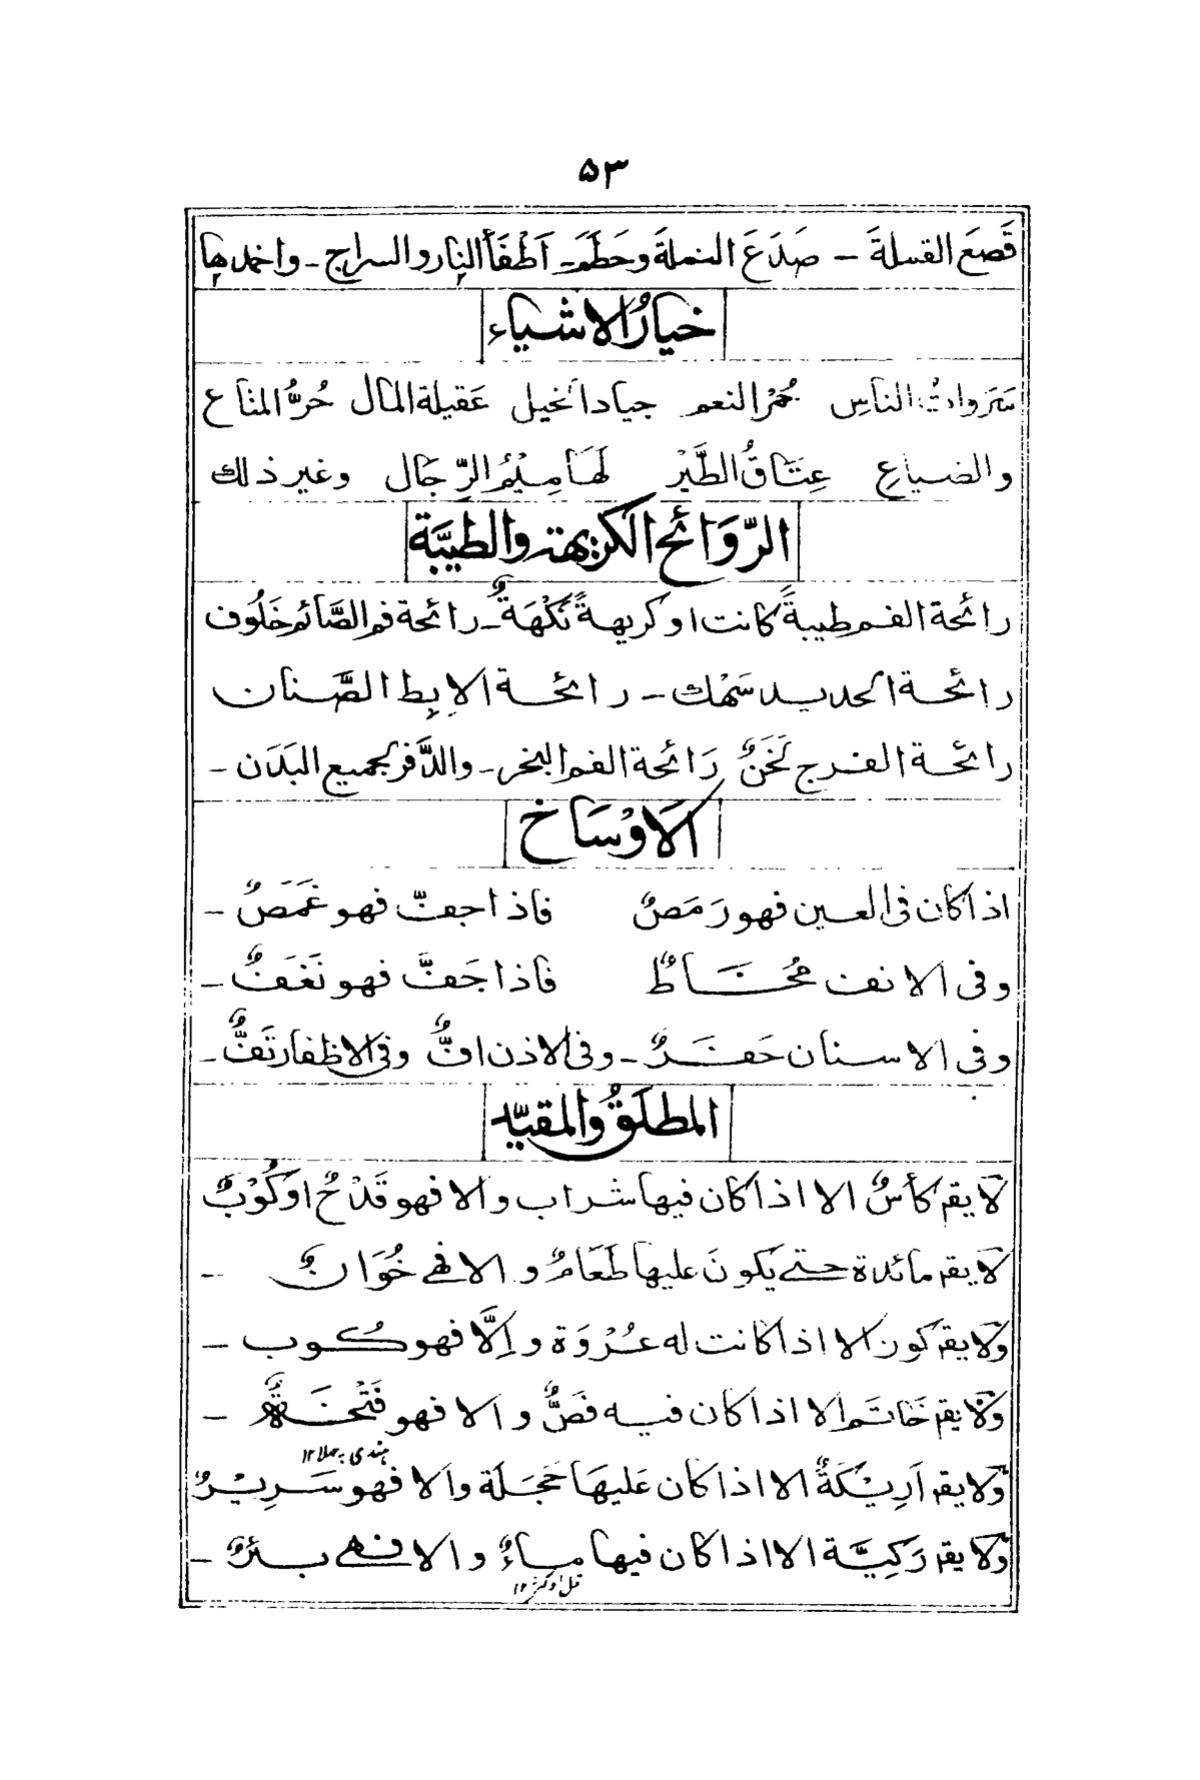 ۵۳
قَصَعَ القسلةَ – صَدَعَ النملةَ وحَطَمَ – اَطْفَأَ النار والسراج – واخمدها
خيارُ الاشياء
سَرَواتُ الناسِ حُمْرُ النعم جياد الخيل عَقيلة المال حُرُّ المتاع
والضياعِ عِتَاقُ الطَّيْر لَهَامِيْمُ الرِّجَال وغير ذلك
الرَّوَائح الكريهة والطيبَّة
رائحة الفم طيبةً كانت او كريهةً نَكْهَةٌ – رائحة فم الصَّائم خَلُوف
رائحة الحديد سَهْك – رائحة الاِبِط الصَّنان
رائحة الفرج لَخَنٌ رَائحة الفم البخر – والدَّفر لجميع البَدَن –
اَلاَوْسَاخ
اذا كان فى العين فهو رَمَصٌ فاذا جفّ فهو غَمَصٌ –
وفى الانف مُخَاطٌ فاذا جَفَّ فهو نَغَفٌ –
وفى الاسنان حَفَرٌ – وفى الاذن افٌّ وفى الاظفار تَفٌّ –
المطلَقُ والمقيّد
لَا يقم كأسٌ الا اذا كان فيها شراب والا فهو قَدْحٌ او كُوْبٌ
لَا يقم مائدة حتے يَكونَ عليها طَعَامٌ والا فهے خُوَانٌ –
وَلَا يقم كون الا اذا كانت له عُرْوَة واِلَّا فهو كُوب –
وَلَا يقم خَاتَم الا اذا كان فيه فَصٌّ والا فهو فَتْخَةٌ –
ہندی چھلا ۱۲
وَلا يقم اَرِيْكَةٌ الا اذا كان عَليهَا حَجَلَة والا فهو سَرِيْرٌ
وَلا يقم رَكِيَّة الا اذا كان فيها ماءٌ والا فهے بئرٌ –
قل او كثر ۱۲